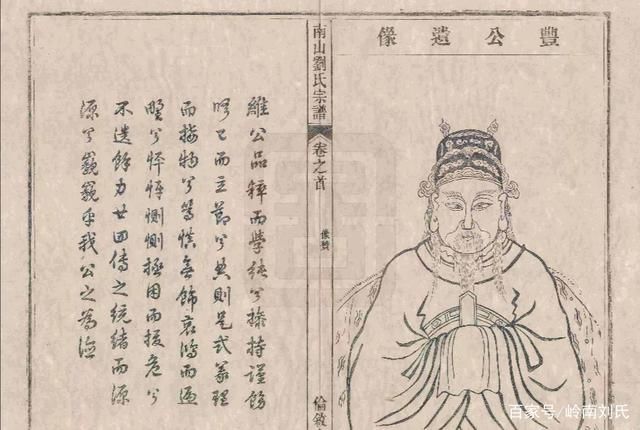 豐公遺像
南山劉氏宗譜
卷之首
像贊
倫敘
維公品粹而學純兮操持謹飭
己而立節兮典則是式理
而接物兮篤慎無飾哀鴻而遍
野兮惻惻拯困而援危兮
不遺餘力廿四傳之統緒而源
源兮巍巍乎我公之為
百家号/岭南刘氏